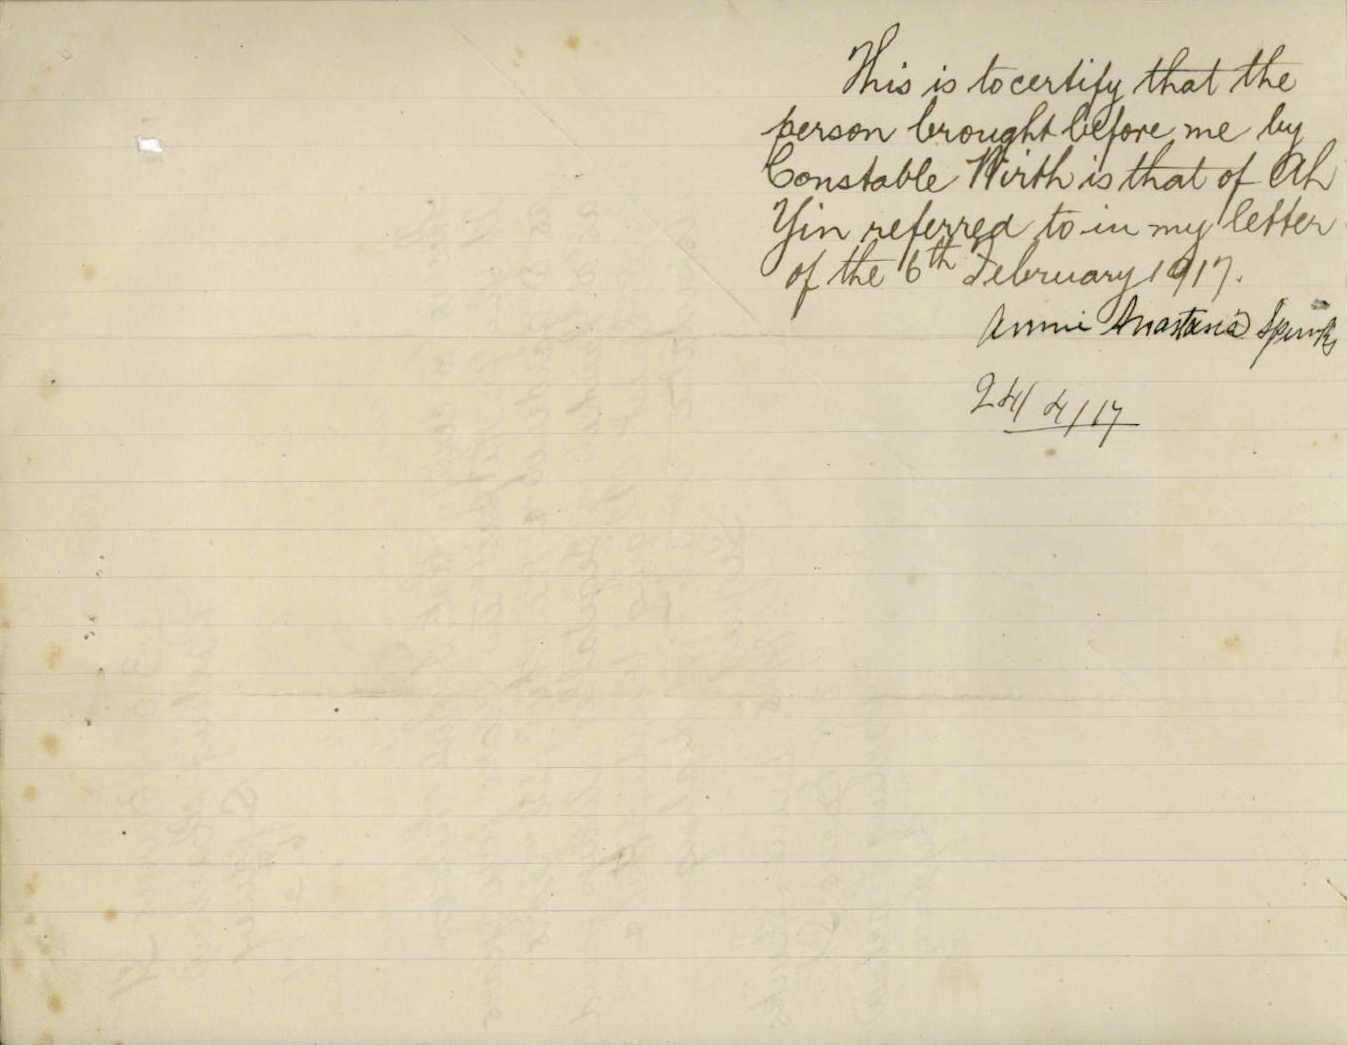 This is to certify that the
person brought before me by
Constable Wirth is that of Ah
Yin referred to in my letter
of the 6th February 1917.
Annie Anastasia Spinks
24/4/17